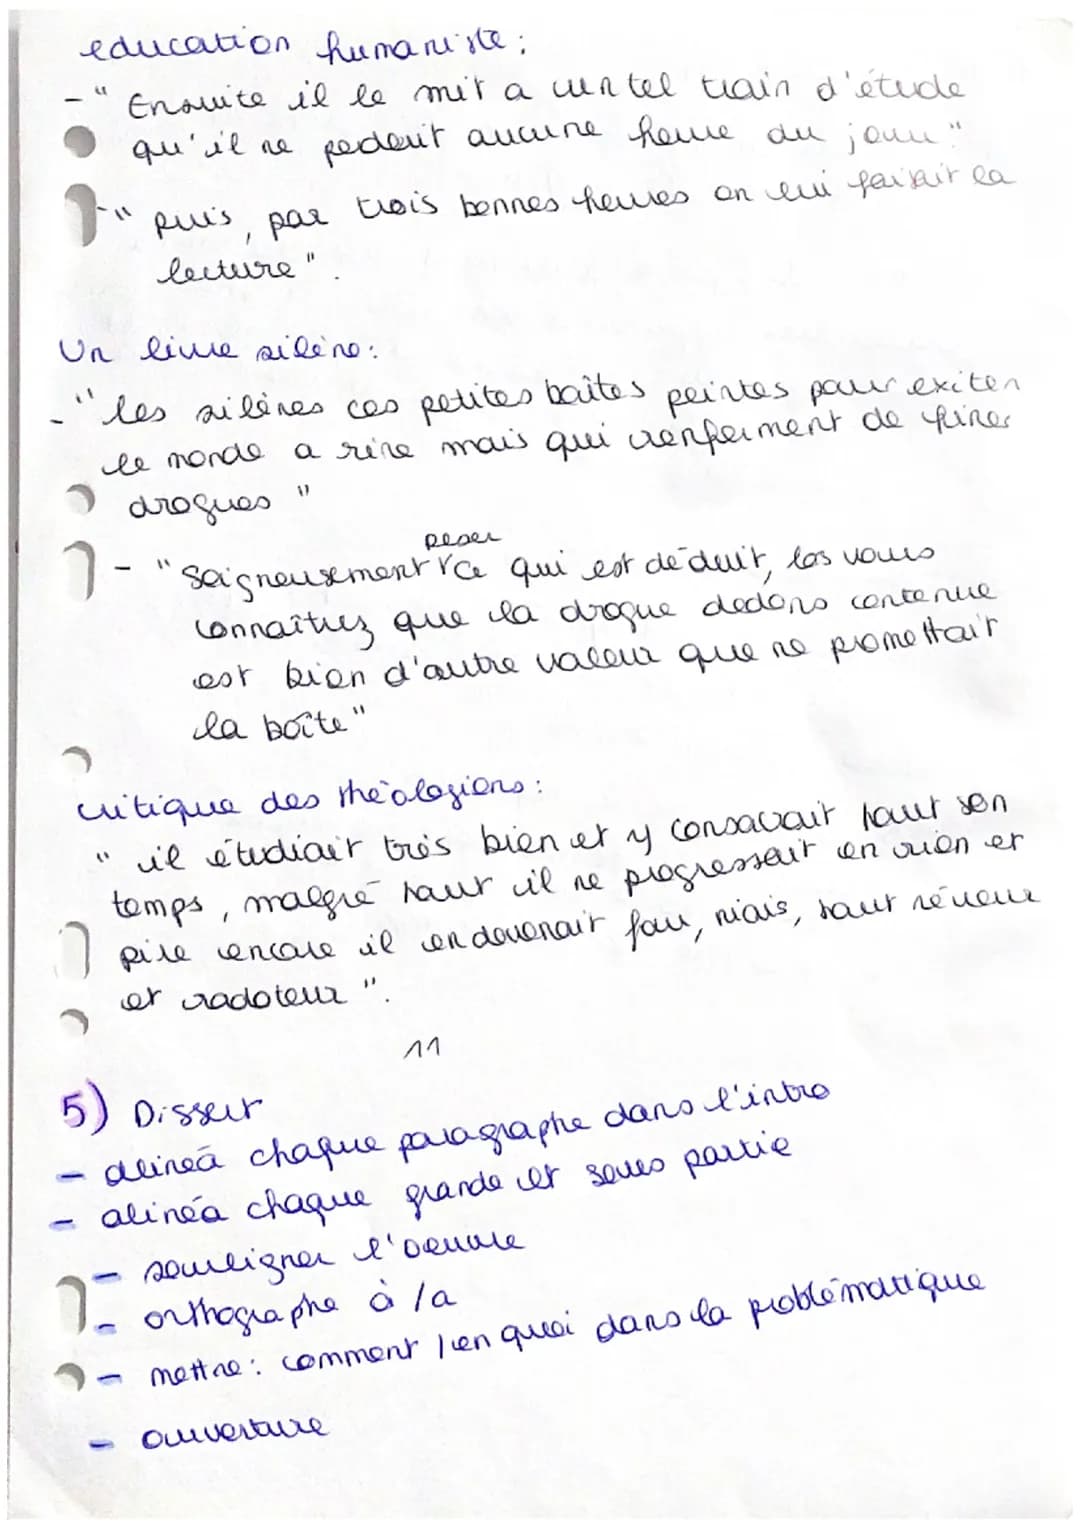 education humaniste :
- " Ensuite il le mit a un tel train d'étude
qu'il ne perdait aucune heure du jour "
- " puis, par trois bonnes heures on lui faisait la
lecture ".
Un livre silène :
- " les silènes ces petites boîtes peintes pour exiter
le monde a rire mais qui renferment de fines
drogues "
peser
- " Soigneusement ce qui est déduit, las vous
connaîtrez que la drogue dedans contenue
est bien d'autre valeur que ne promettait
la boîte "
critique des théologiens :
" il étudiait très bien et y consacrait tout son
temps, malgré tout il ne progressait en rien et
pire encore il en devenait fou, niais, tout rêveur
et radoteur ".
11
5) Dissert
- alinéa chaque paragraphe dans l'intro
- alinéa chaque grande et sous partie
- souligner l'oeuvre
- orthographe à /a
- mettre : comment / en quoi dans la problématique
- ouverture